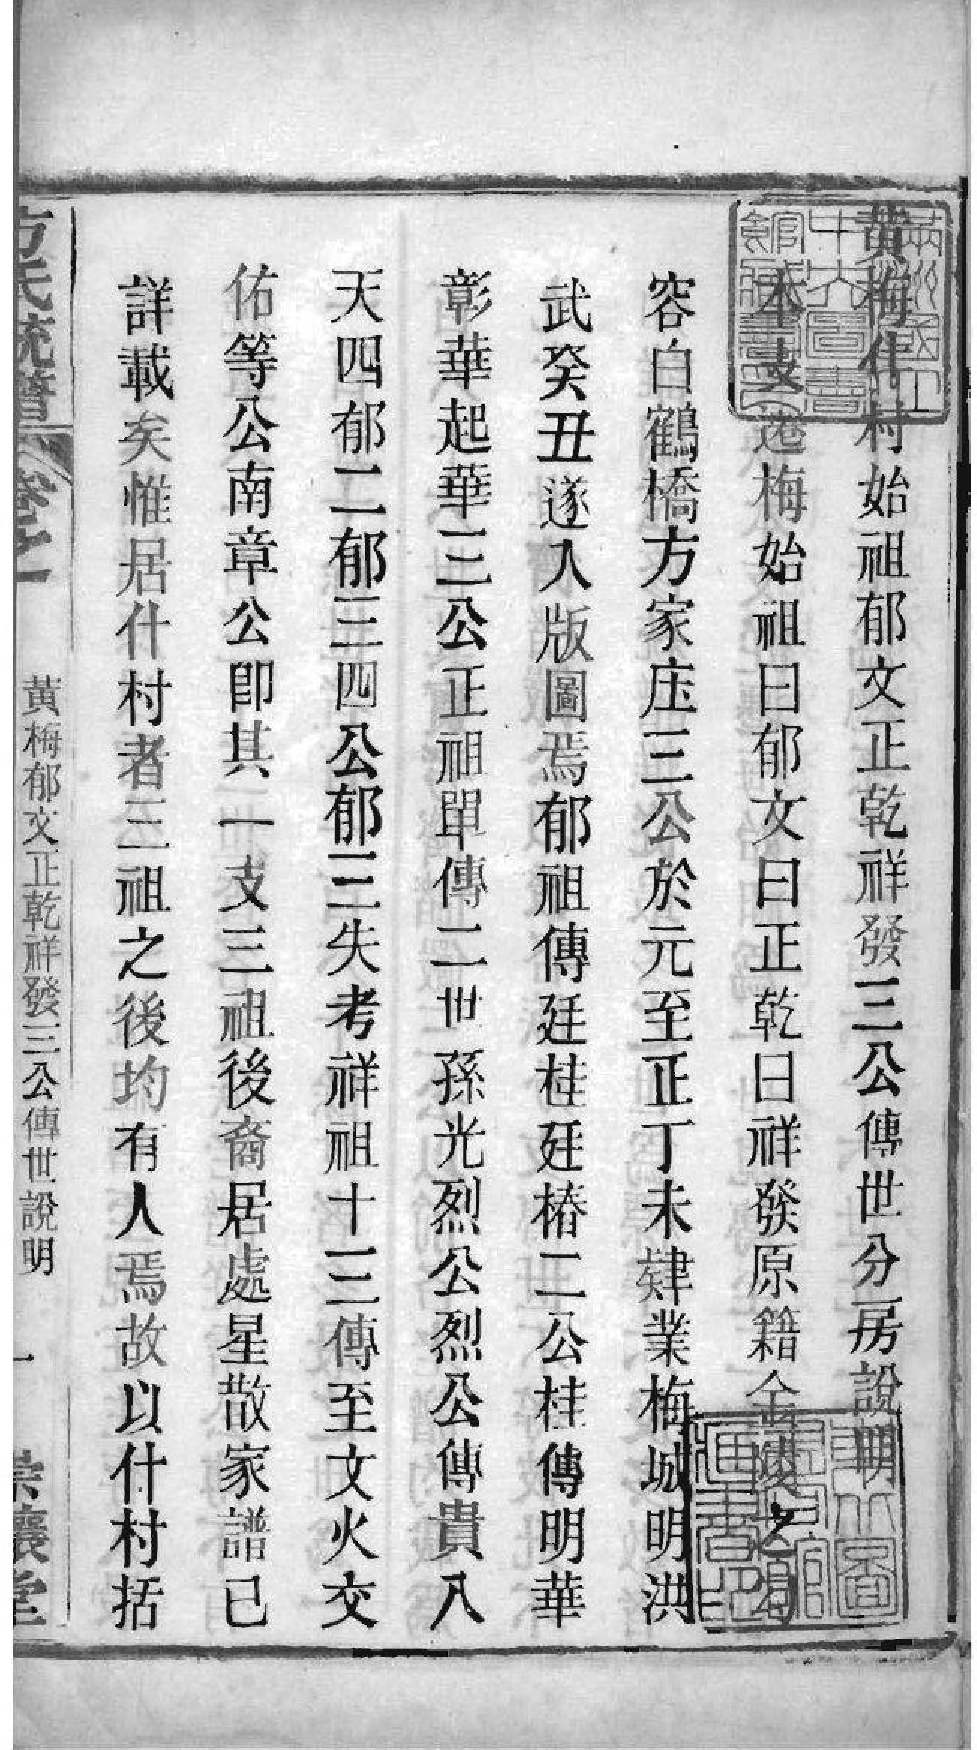 黃梅什村始祖郁文正乾祥發三公傳世分房說明
本支遷梅始祖曰郁文曰正乾曰祥發原籍金陵之句
容白鶴橋方家庄三公於元至正丁未肄業梅城明洪
武癸丑遂入版圖焉郁祖傳廷桂廷椿二公桂傳明華
彰華起華三公正祖單傳二世孫光烈公烈公傳貴八
天四郁二郁三四公郁三失考祥祖十三傳至文火交
佑等公南章公即其一支三祖後裔居處星散家譜已
詳載矣惟居什村者三祖之後均有人焉故以什村括
方氏統譜 卷之一 黃梅郁文正乾祥發三公傳世說明 一 崇讓堂